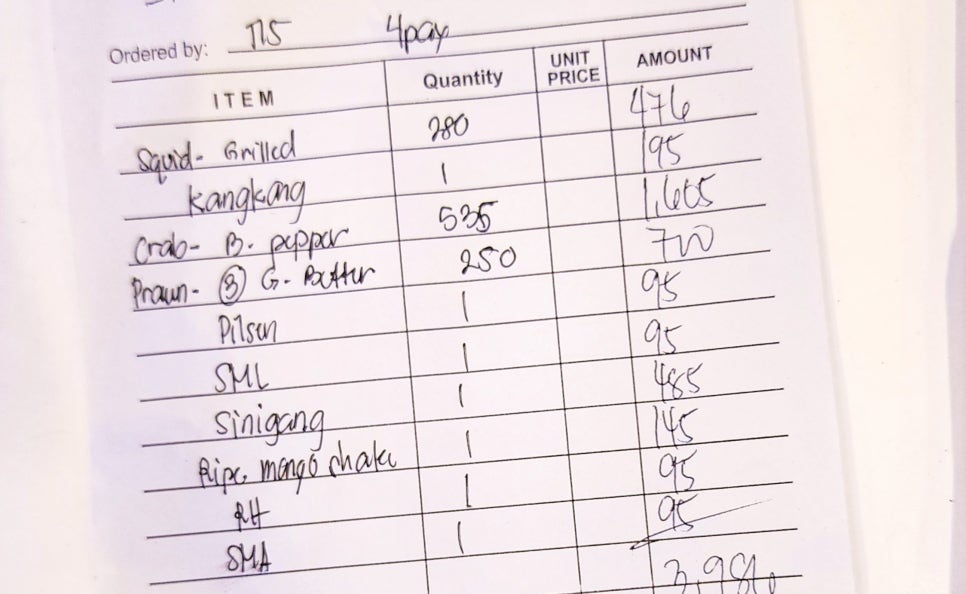 Ordered by: T15 4pax
ITEM Quantity UNIT PRICE AMOUNT
Squid - Grilled 280 476
Kangkong 1 195
Crab - B. pepper 535 1,605
Prawn - ③ G. Butter 250 700
Pilsen 1 95
SML 1 95
Sinigang 1 485
Ripe mango shake 1 145
RH 1 95
SMA 1 95
3,986